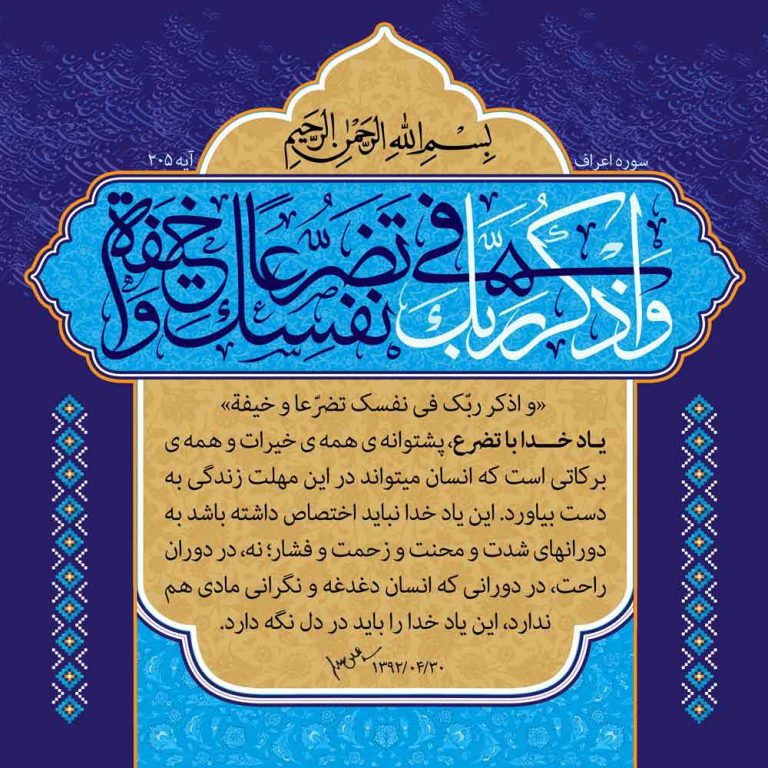 بِسْمِ اللهِ الرَّحْمٰنِ الرَّحِيْمِ
سوره اعراف
آیه ۲۰۵
وَاذْكُر رَّبَّكَ فِي نَفْسِكَ تَضَرُّعًا وَخِيفَةً
«و اذکر ربّک فی نفسک تضرّعا و خیفة»
یاد خدا با تضرع، پشتوانه ی همه ی خیرات و همه ی
برکاتی است که انسان میتواند در این مهلت زندگی به
دست بیاورد. این یاد خدا نباید اختصاص داشته باشد به
دورانهای شدت و محنت و زحمت و فشار؛ نه، در دوران
راحت، در دورانی که انسان دغدغه و نگرانی مادی هم
ندارد، این یاد خدا را باید در دل نگه دارد.
۱۳۹۲/۰۴/۳۰